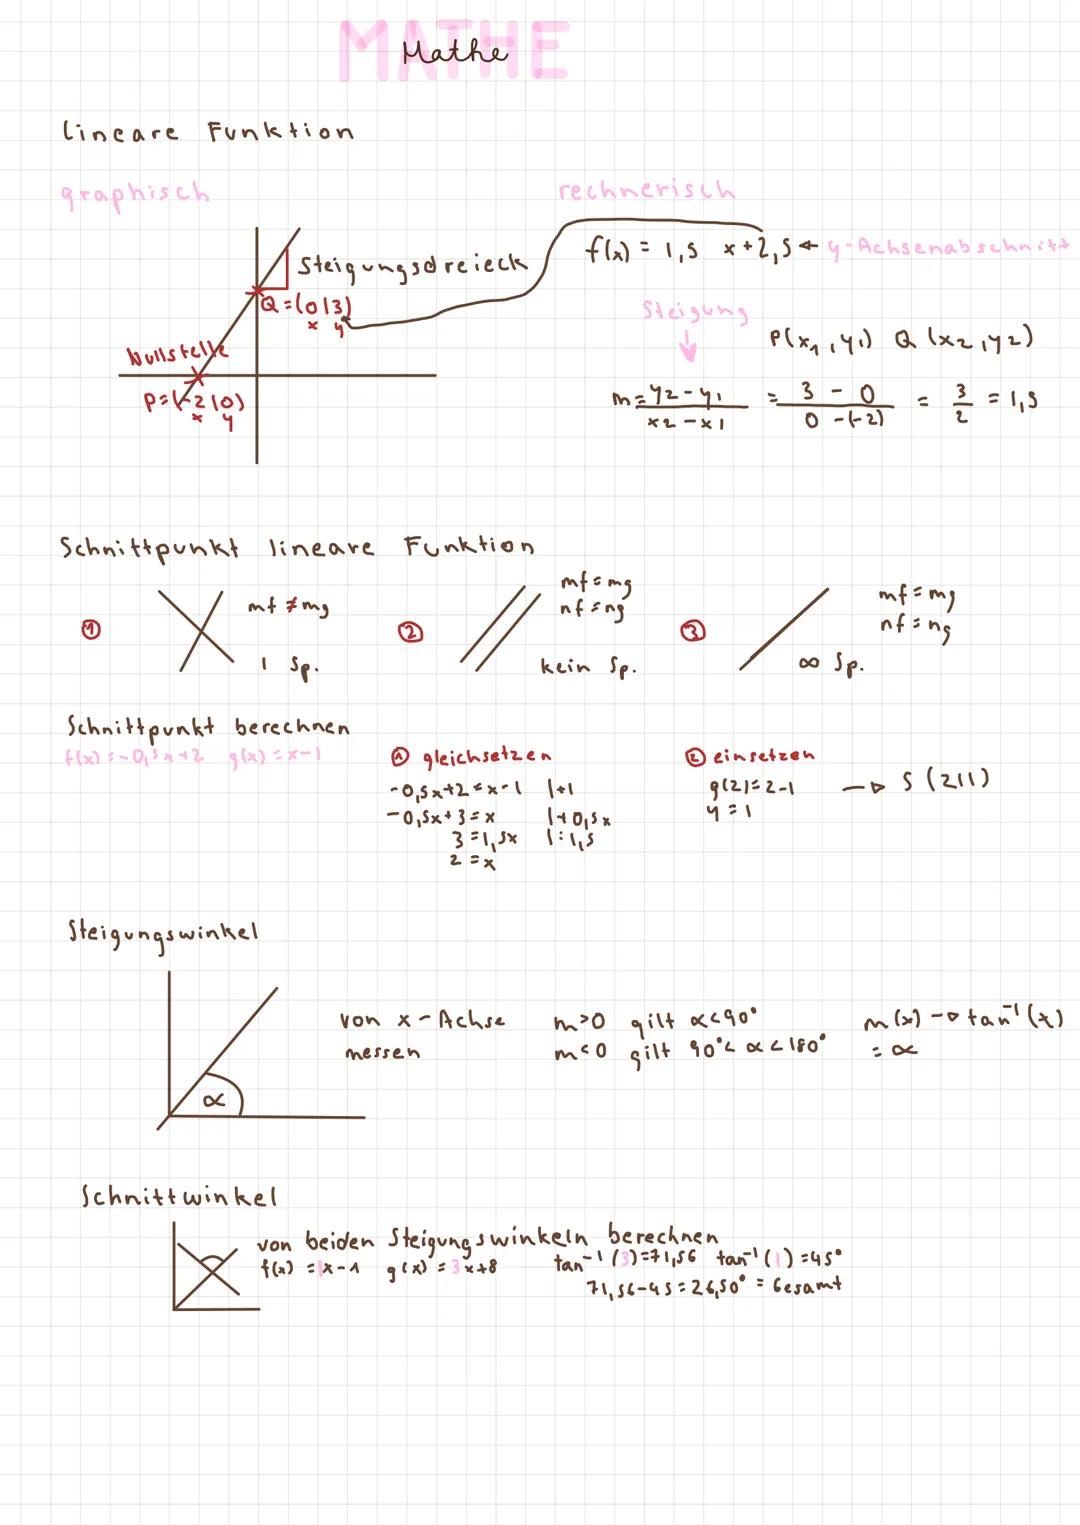 MATHE
Mathe
lineare Funktion
graphisch
rechnerisch
Steigungsdreieck
Q=(0|3)
x y
Nullstelle
P=(-2|0)
x y
f(x) = 1,5 x+2,5 ← y-Achsenabschnitt
Steigung
P(x1,y1) Q(x2,y2)
m = y2-y1 / x2-x1 = 3-0 / 0-(-2) = 3/2 = 1,5
Schnittpunkt lineare Funktion
① mf ≠ mg
1 Sp.
② mf = mg
nf = ng
kein Sp.
③ mf = mg
nf = ng
∞ Sp.
Schnittpunkt berechnen
f(x) = -0,5x+2 g(x) = x-1
① gleichsetzen
-0,5x+2 = x-1 |+1
-0,5x+3 = x |+0,5x
3 = 1,5x |:1,5
2 = x
② einsetzen
g(2) = 2-1 → S(2|1)
y = 1
Steigungswinkel
α
von x-Achse
messen
m>0 gilt α<90°
m<0 gilt 90°< α < 180°
m(x) → tan⁻¹(x)
= α
Schnittwinkel
von beiden Steigungswinkeln berechnen
f(x) = 1x-1 g(x) = 3x+8 tan⁻¹(3)=71,56 tan⁻¹(1)=45°
71,56-45=26,50° = Gesamt